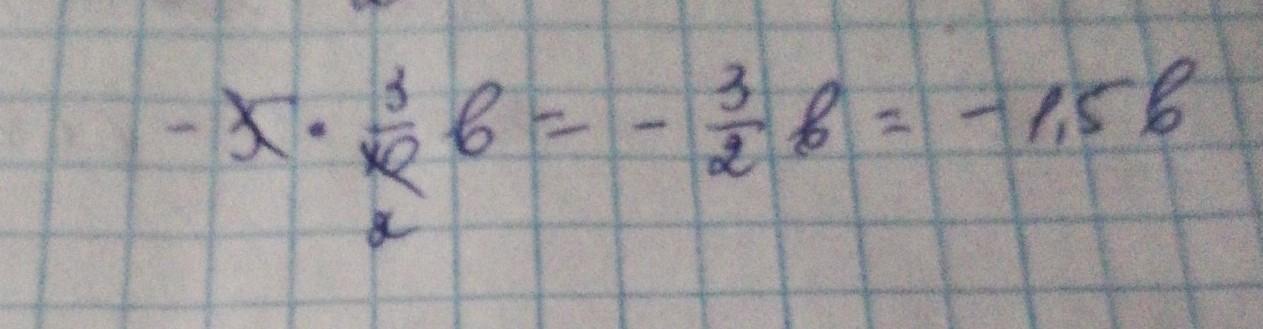 - 5 · 3/10 b = - 3/2 b = - 1,5 b
2